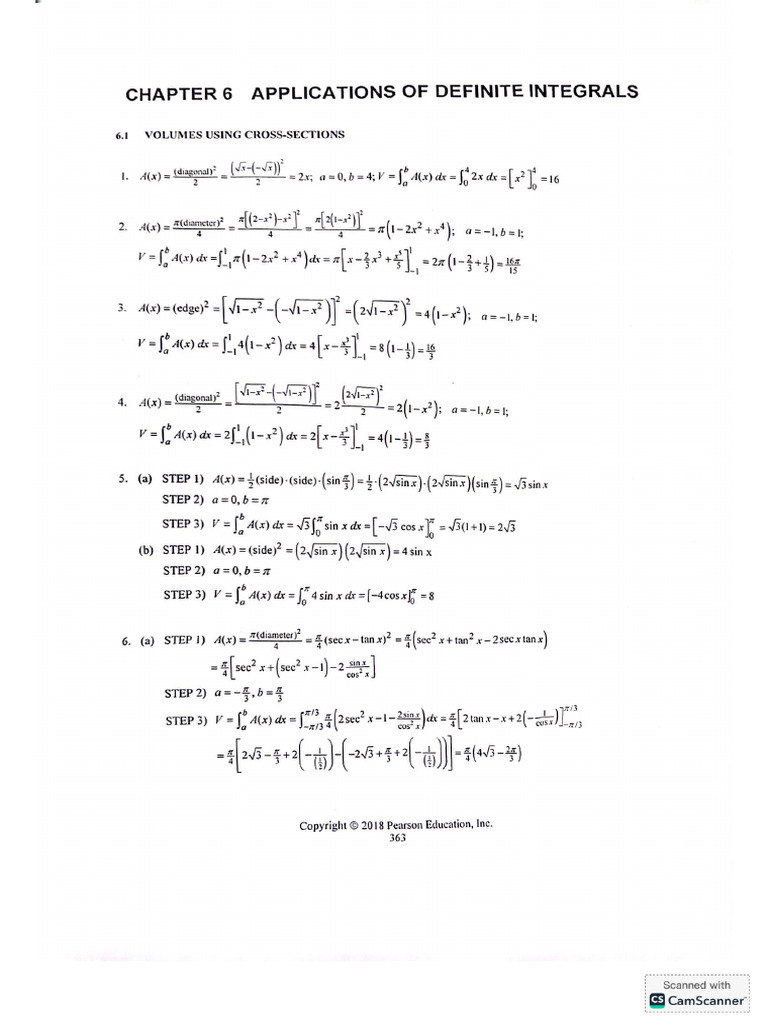 CHAPTER 6 APPLICATIONS OF DEFINITE INTEGRALS
6.1 VOLUMES USING CROSS-SECTIONS
1. A(x) = (diagonal)²/2 = (√x−(−√x))²/2 = 2x; a = 0, b = 4; V = ∫_a^b A(x) dx = ∫_0^4 2x dx = [x²]_0^4 = 16
2. A(x) = π(diameter)²/4 = π[(2−x²)−x²]²/4 = π[2(1−x²)]²/4 = π(1−2x²+x⁴); a = −1, b = 1;
V = ∫_a^b A(x) dx = ∫_{−1}^1 π(1−2x²+x⁴)dx = π[x−2/3 x³+x⁵/5]_{−1}^1 = 2π(1−2/3+1/5) = 16π/15
3. A(x) = (edge)² = [√(1−x²)−(−√(1−x²))]² = (2√(1−x²))² = 4(1−x²); a = −1, b = 1;
V = ∫_a^b A(x) dx = ∫_{−1}^1 4(1−x²) dx = 4[x−x³/3]_{−1}^1 = 8(1−1/3) = 16/3
4. A(x) = (diagonal)²/2 = [√(1−x²)−(−√(1−x²))]²/2 = 2(2√(1−x²))²/2 = 2(1−x²); a = −1, b = 1;
V = ∫_a^b A(x) dx = 2∫_{−1}^1 (1−x²) dx = 2[x−x³/3]_{−1}^1 = 4(1−1/3) = 8/3
5. (a) STEP 1) A(x) = 1/2 (side)·(side)·(sin π/3) = 1/2·(2√(sin x))·(2√(sin x))(sin π/3) = √3 sin x
STEP 2) a = 0, b = π
STEP 3) V = ∫_a^b A(x) dx = √3∫_0^π sin x dx = [−√3 cos x]_0^π = √3(1+1) = 2√3
(b) STEP 1) A(x) = (side)² = (2√(sin x))(2√(sin x)) = 4 sin x
STEP 2) a = 0, b = π
STEP 3) V = ∫_a^b A(x) dx = ∫_0^π 4 sin x dx = [−4cos x]_0^π = 8
6. (a) STEP 1) A(x) = π(diameter)²/4 = π/4 (sec x − tan x)² = π/4 (sec² x + tan² x − 2sec x tan x)
= π/4 [sec² x + (sec² x −1) − 2 sin x/cos² x]
STEP 2) a = −π/3, b = π/3
STEP 3) V = ∫_a^b A(x) dx = ∫_{−π/3}^{π/3} π/4 (2sec² x −1− 2sin x/cos² x)dx = π/4 [2 tan x − x + 2(−1/cos x)]_{−π/3}^{π/3}
= π/4 [2√3 − π/3 + 2(−1/(1/2)) − (−2√3 + π/3 + 2(−1/(1/2)))] = π/4 (4√3 − 2π/3)
Copyright © 2018 Pearson Education, Inc.
363
Scanned with
CS CamScanner